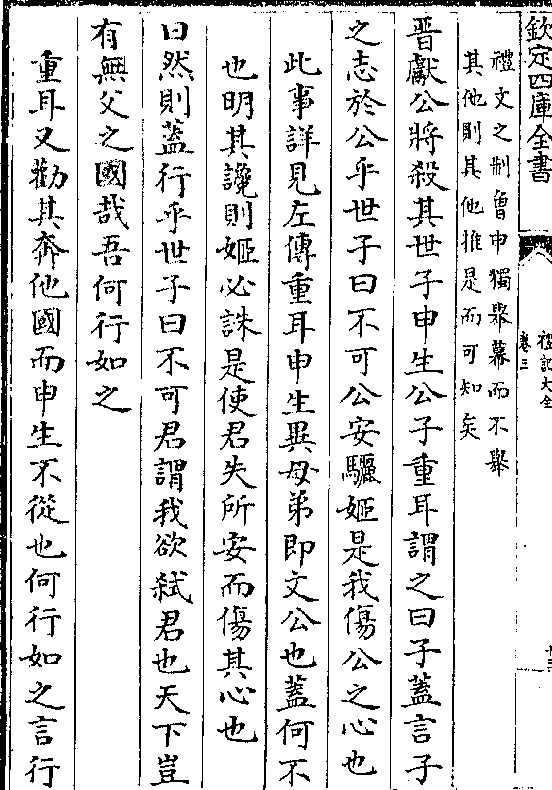 欽定四庫全書
禮記大全
卷三
禮文之制魯申獨舉幕而不舉
其他則其他推是而可知矣
晉獻公將殺其世子申生公子重耳謂之曰子蓋言子
之志於公乎世子曰不可公安驪姬是我傷公之心也
此事詳見左傳重耳申生異母弟即文公也蓋何不
也明其讒則姬必誅是使君失所安而傷其心也
曰然則蓋行乎世子曰不可君謂我欲弑君也天下豈
有無父之國哉吾何行如之
重耳又勸其奔他國而申生不從也何行如之言行